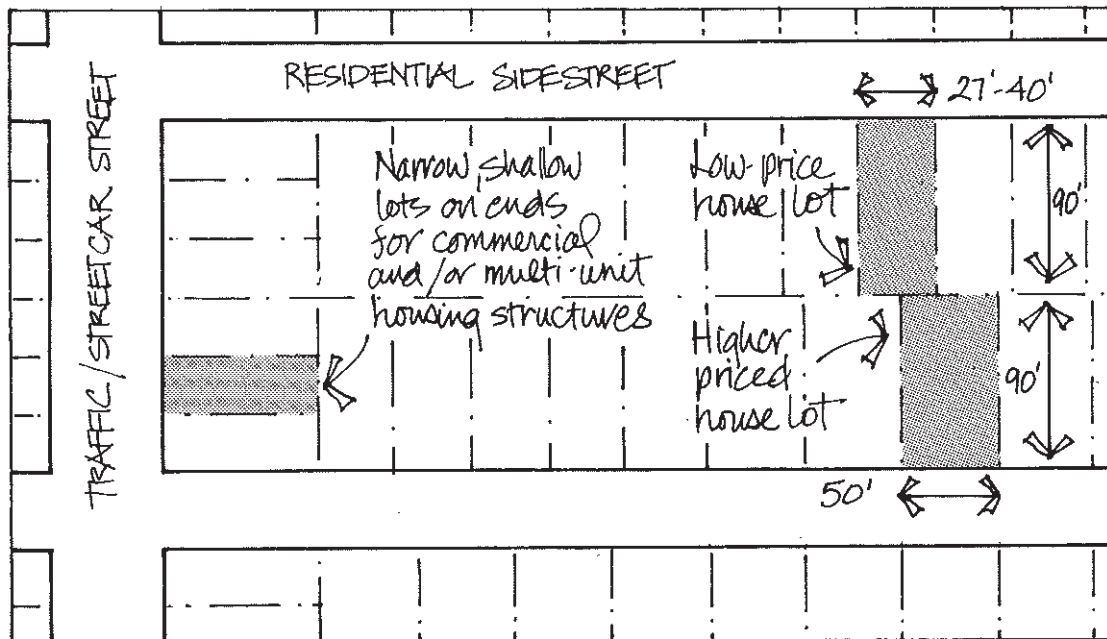 RESIDENTIAL SIDESTREET
TRAFFIC/STREETCAR STREET
27'-40'
Narrow, shallow
lots on ends
for commercial
and/or multi-unit
housing structures
Low-price
house lot
90'
Higher
priced
house lot
90'
50'